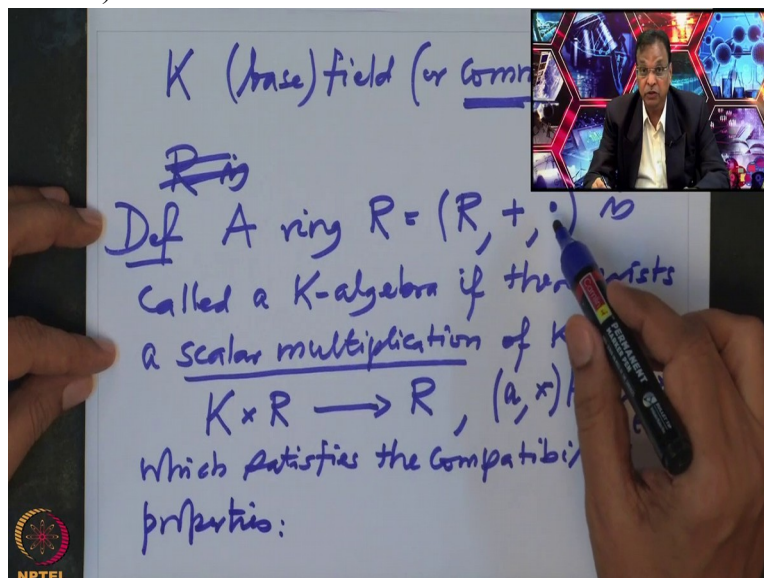 K (base) field (or comm
R is
Def A ring R = (R, +, ·) is
called a K-algebra if there exists
a scalar multiplication of K
K × R ⟶ R , (a, x)
which satisfies the compatibi
properties:
PERMANENT
MARKER
NPTEL